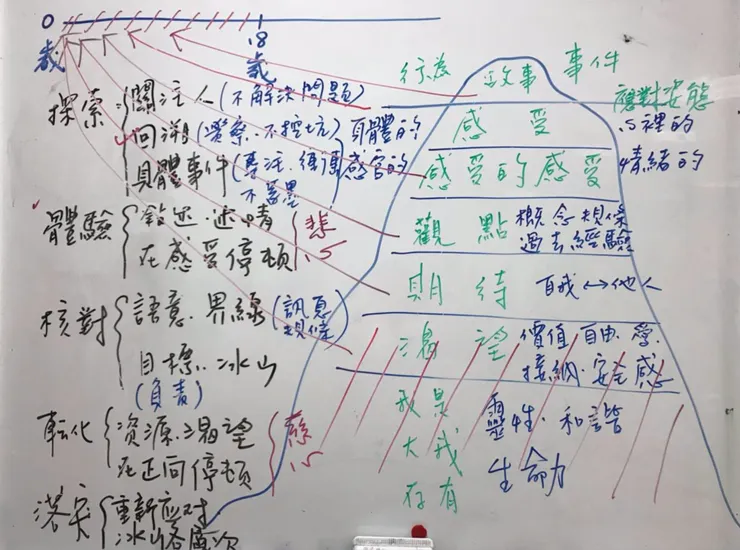 0
18
歲
歲
探索
關注人(不解決問題)
回溯(覺察.不挖坑)
具體事件(專注
不
體驗
敘述.述情
在感受停頓
悲心
核對
語意.界線(訊息
規條)
目標.冰山
(負責)
転化
资源.渴望
在正向停頓
慈心
落实
重新应对
冰山各層次
行為 故事 事件
應對姿態
感受
身體的
心裡的
感受的感受
感官的
情緒的
觀點
概念規條
過去經驗
期待
自我↔他人
渴望
價值.自由.愛.
接納.安全感
我是
大我
存有
靈性.和諧
生命力